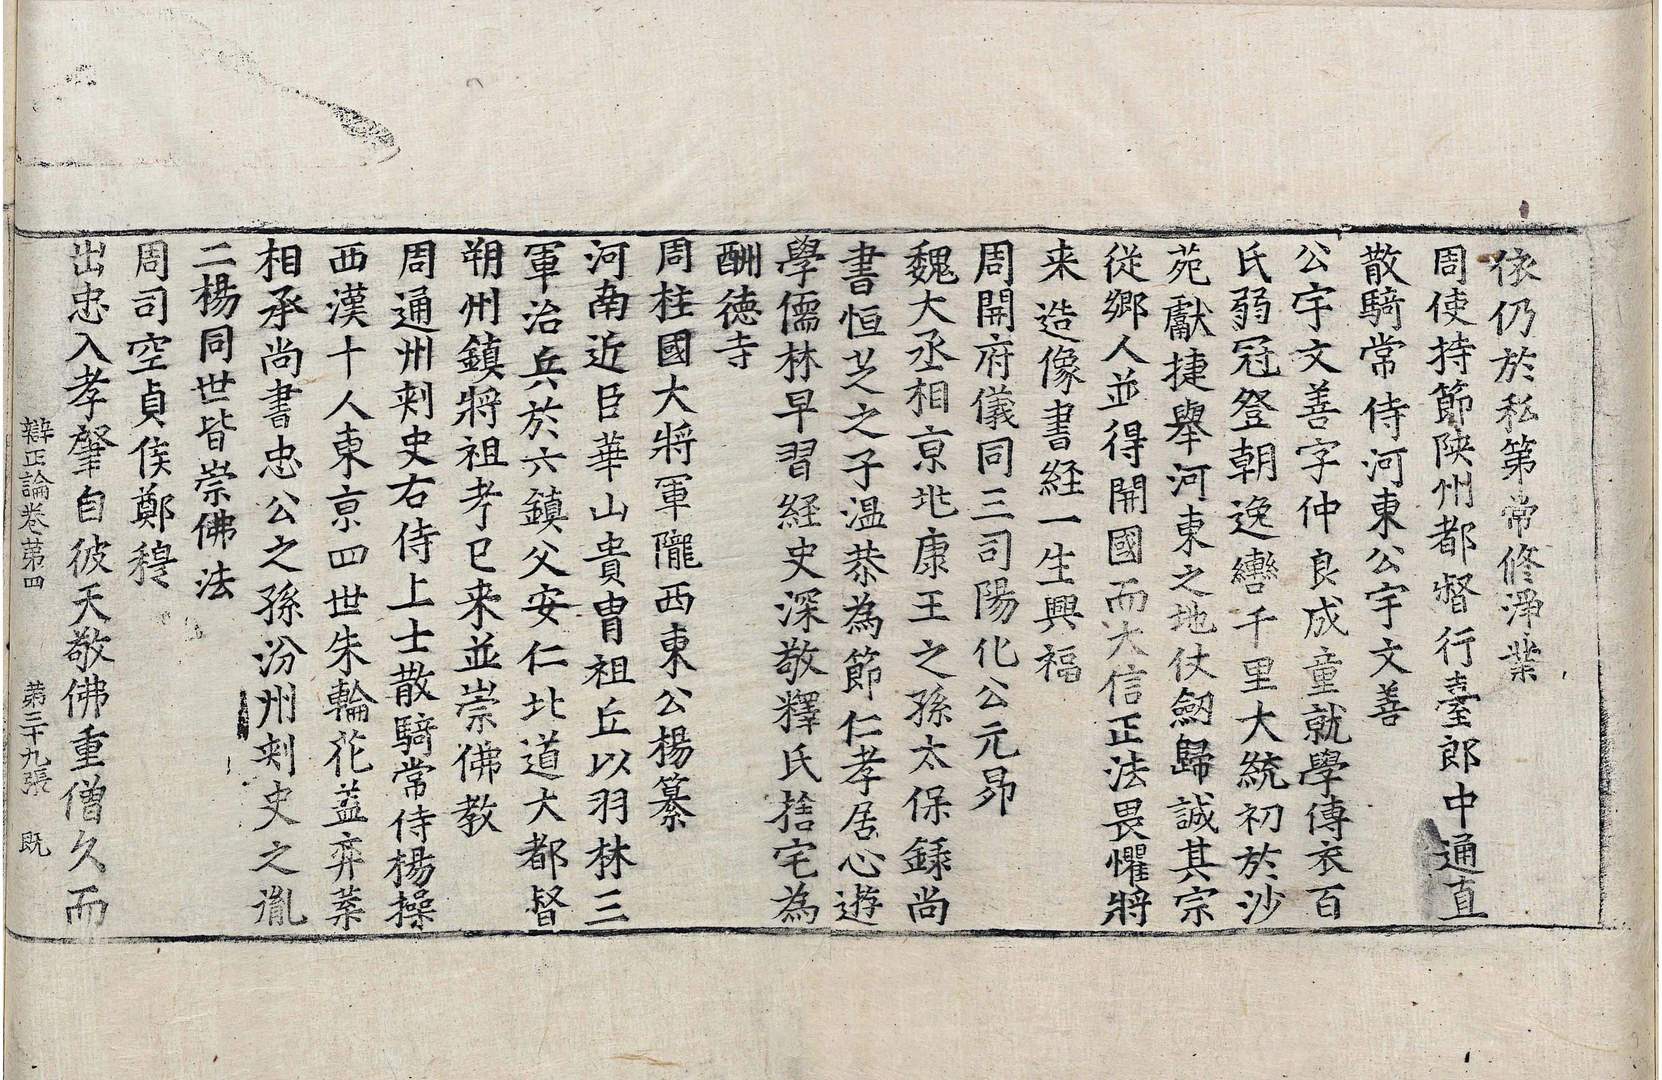 依仍於私第常修淨業
周使持節陝州都督行臺郎中通直
散騎常侍河東公宇文善
公宇文善字仲良成童就學傳衣百
氏弱冠登朝逸轡千里大統初於沙
苑獻捷舉河東之地仗劒歸誠其宗
從鄉人並得開國而大信正法畏懼將
来造像書経一生興福
周開府儀同三司陽化公元昴
魏大丞相京兆康王之孫太保錄尚
書恒芝之子温恭為節仁孝居心遊
學儒林早習経史深敬釋氏捨宅為
酬德寺
周柱國大將軍隴西東公楊纂
河南近臣華山貴胄祖丘以羽林三
軍治兵於六鎮父安仁北道大都督
朔州鎮將祖考已来並崇佛教
周通州刾史右侍上士散騎常侍楊操
西漢十人東京四世朱輪花蓋弈葉
相承尚書忠公之孫汾州刾史之胤
二楊同世皆崇佛法
周司空貞侯鄭穆
出忠入孝肇自彼天敬佛重僧久而
辯正論卷第四　第三十九張　既